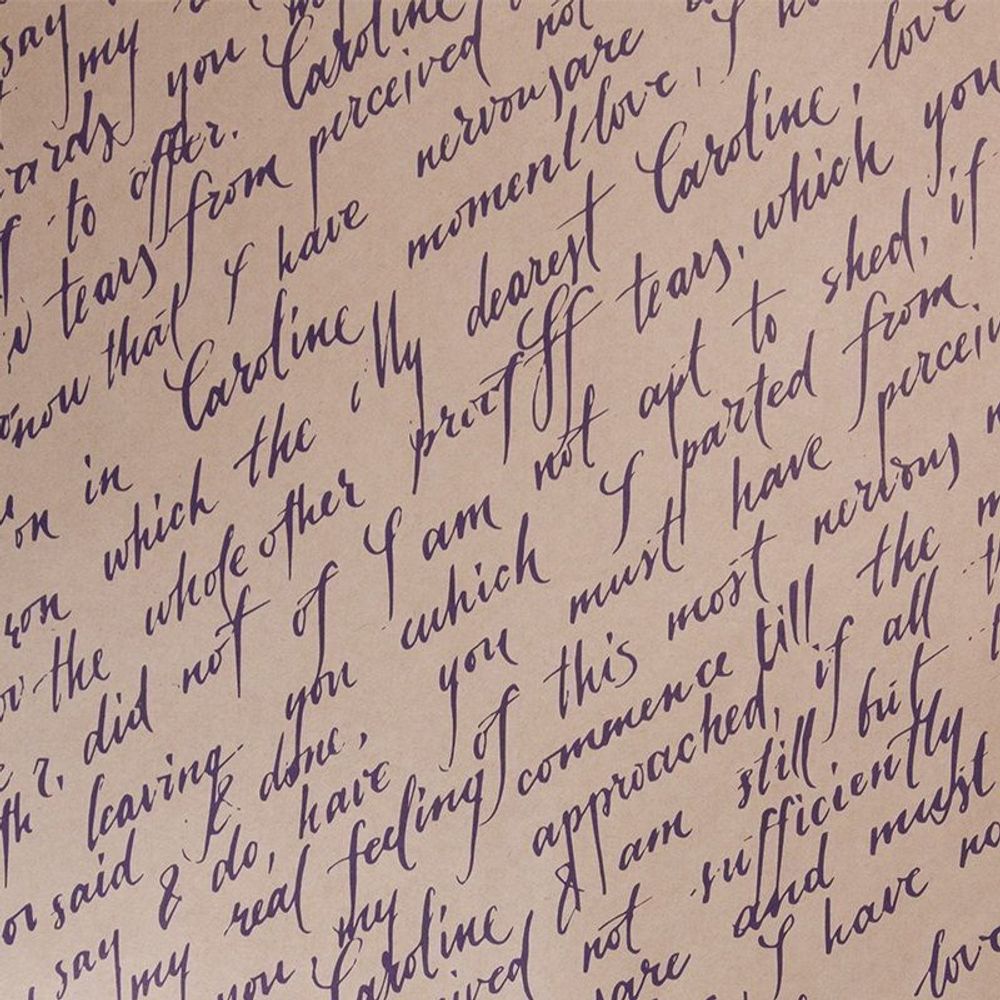 say
my
wards you,
to offer. Caroline
tears from perceived not
know that I have nervous are
on in Caroline moment love, I
which the My dearest Caroline, love
the whole other proof tears, which you
did not of I am not apt to shed, if
leaving you which I parted from.
said & done, you must have perceiv
say & do, have of this most nervous
my real feeling commence till the
you, my approached, if all
Caroline & am still but
ived not sufficiently
are and must
I have no
love